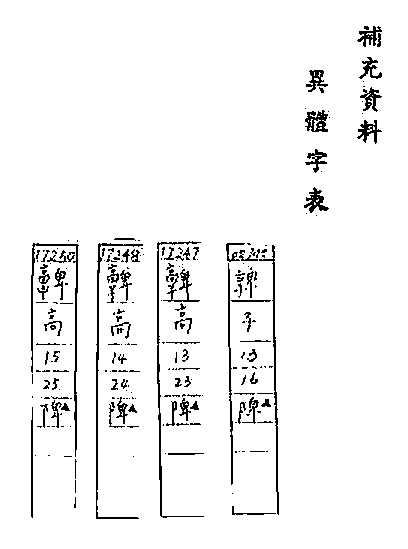 補充資料
異體字表
13
16
陴▲
17247
高
13
23
陴▲
17248
高
14
24
陴▲
高
15
25
陴▲